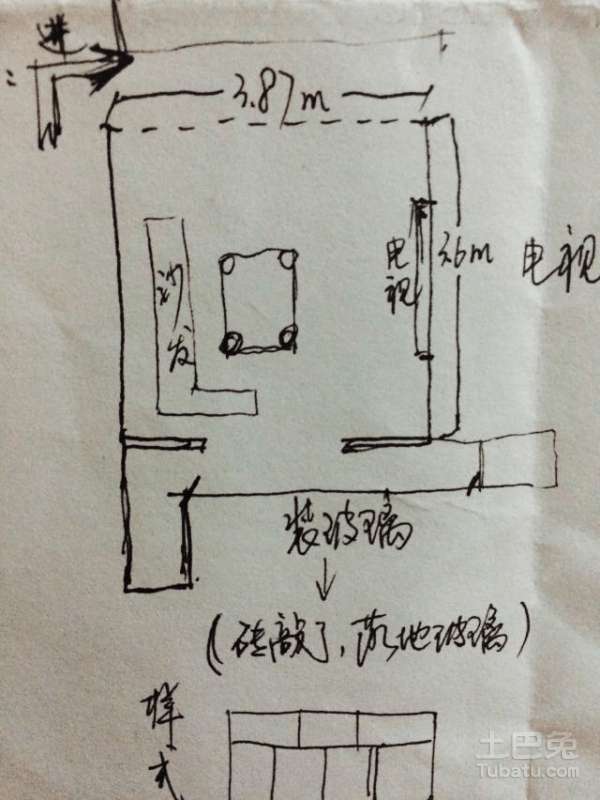 进
3.87m
沙发
电视
3.6m
电视
装玻璃
(砖敲了,落地玻璃)
样式
土巴兔
Tubatu.com